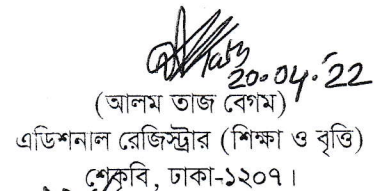 20.04.22
(আলম তাজ বেগম)
এডিশনাল রেজিস্ট্রার (শিক্ষা ও বৃত্তি)
শেকৃবি, ঢাকা-১২০৭।